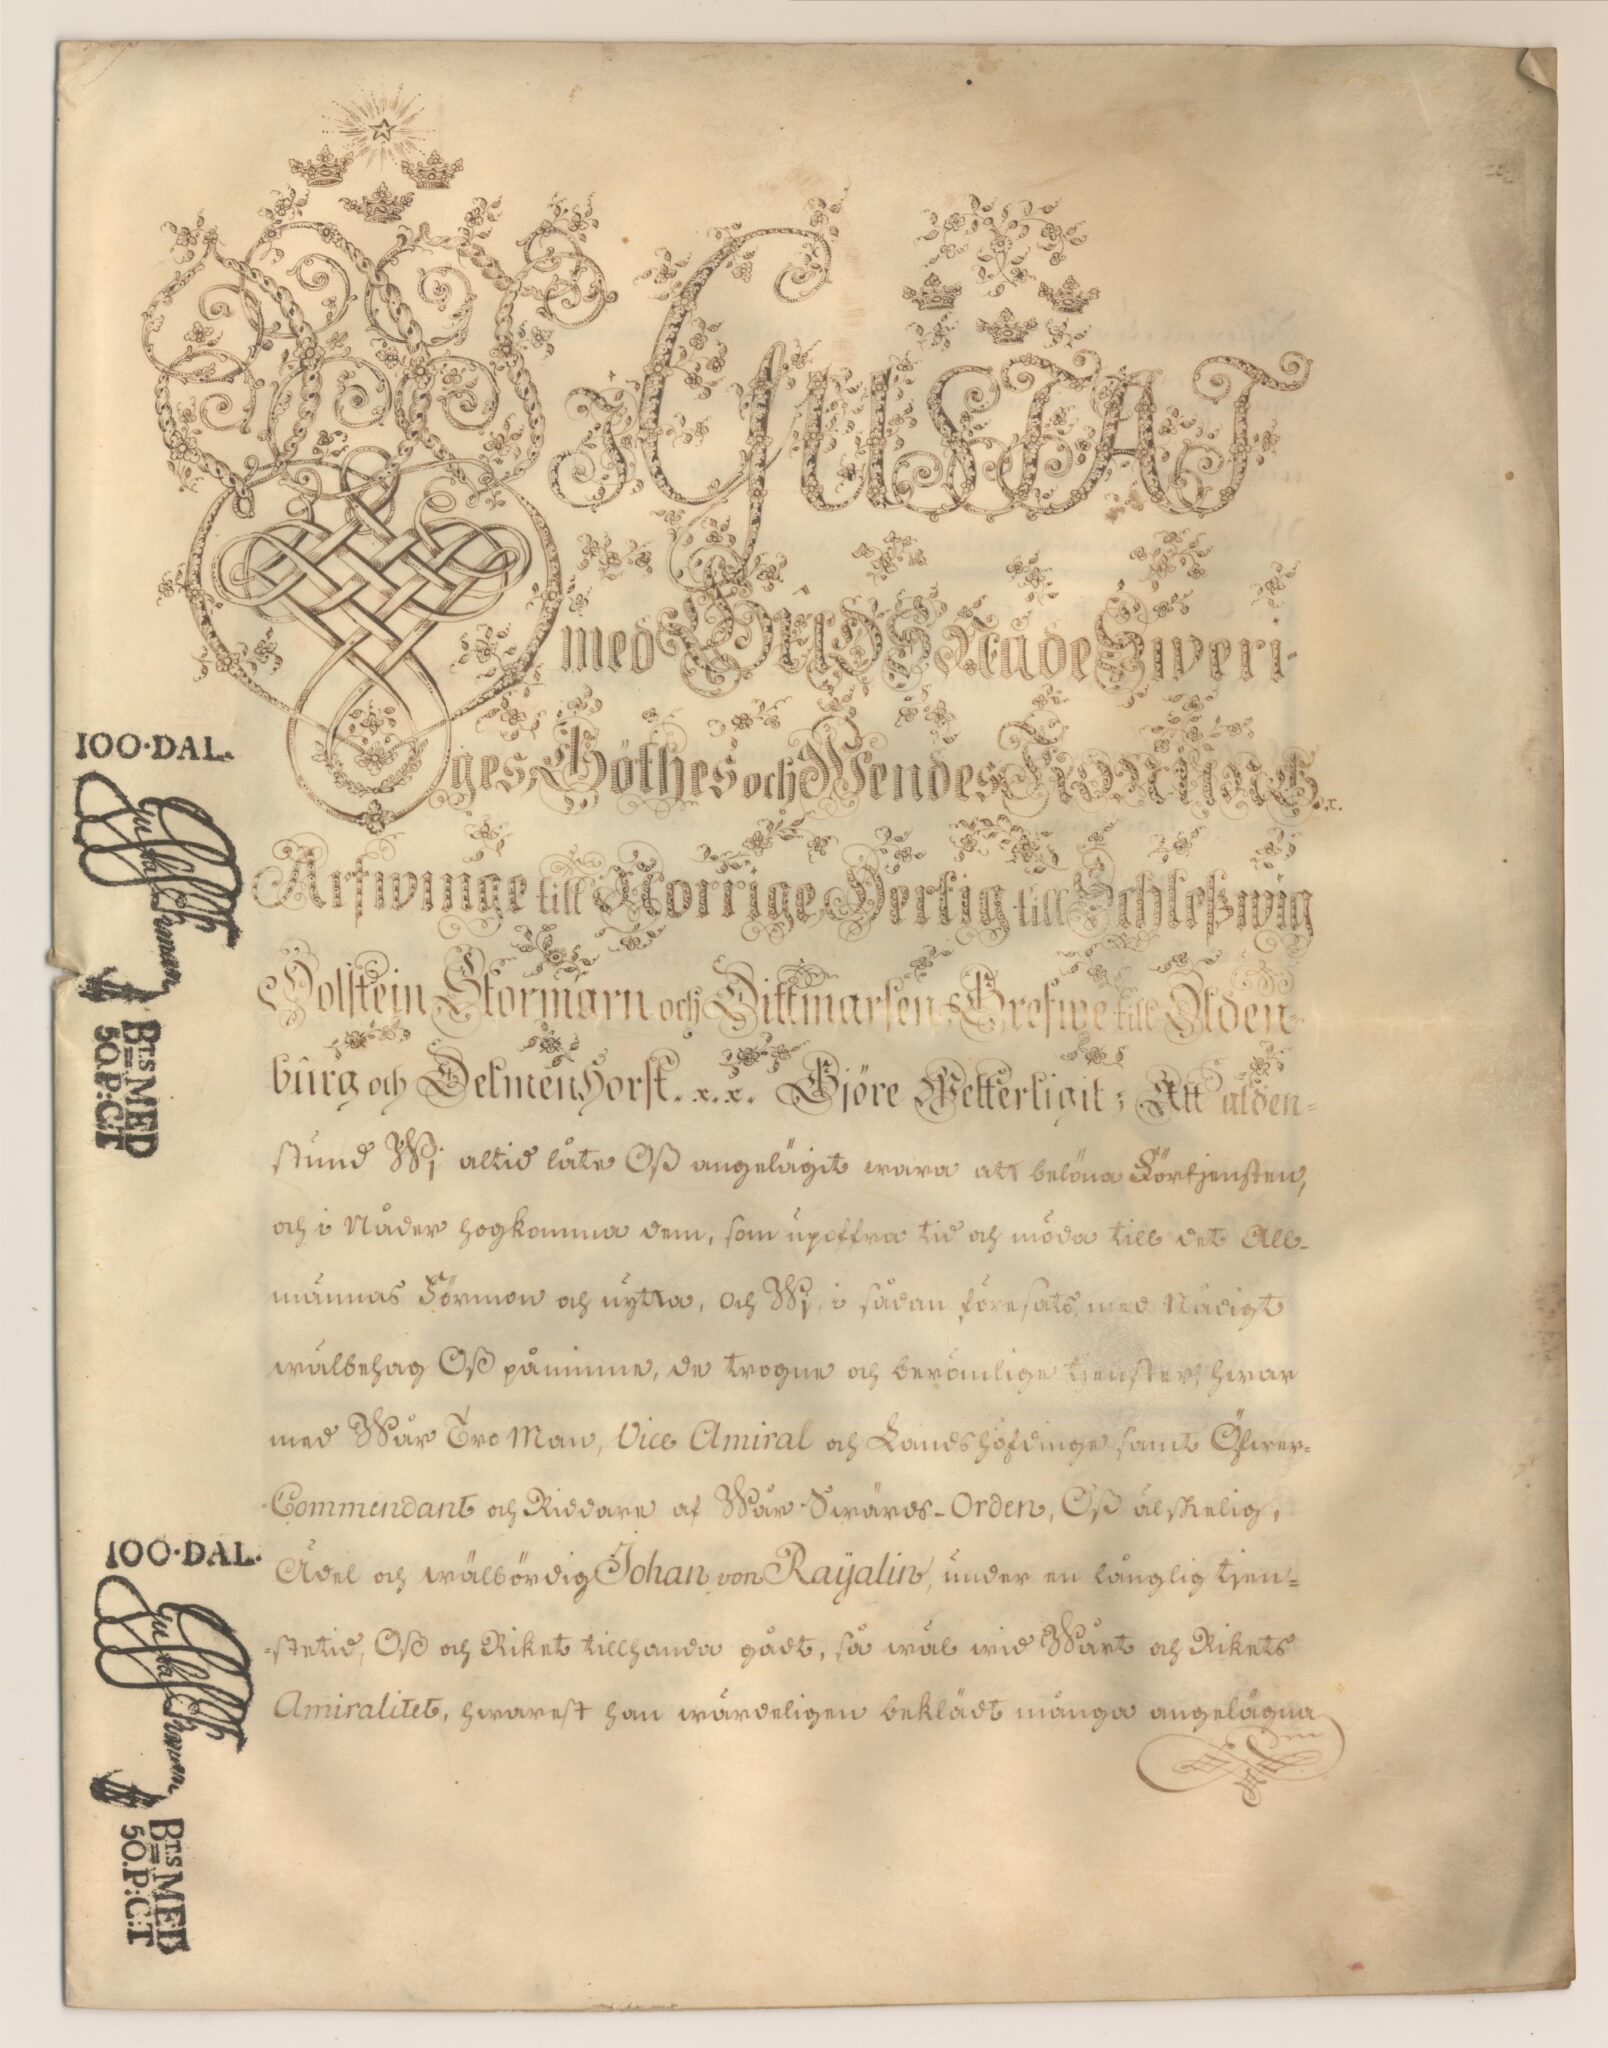 Wi GUSTAF
med GUDS Nåde Sweri-
ges, Göthes och Wendes KONUNG.x.
Arfwinge till Norrige, Hertig till Schleßwig
Holstein, Stormarn och Dittmarsen, Grefwe till Olden-
burg och DelmenHorst. x. x. Gjöre Wetterligit; Att alden=
stund Wj altid låte Oß angelägit wara att belöna Förtjensten,
och i Nåder hogkomma dem, som upoffra tid och möda till det All-
männas Förmon och nytta, och Wj, i sådan föresats, med Nådigt
wälbehag Oß påminne, de trogne och berömlige tjenster, hwar
med Wår Tro Man, Vice Amiral och Landshöfdinge samt Öfwer=
-Commendant och Riddare af Wår Swärds-Orden, Oß älskelig,
Ädel och wälbördig Johan von Raÿalin, under en långlig tjen=
=stetid, Oß och Riket tillhanda gådt, så wäl wid Wårt och Rikets
Amiralitet, hwarest han wärdeligen beklädt många angelägna
100·DAL.
Gust: Ehrman
Bt.s MED
50.P:C:T
100·DAL.
Gust: Ehrman
Bt.s MED
50.P:C:T